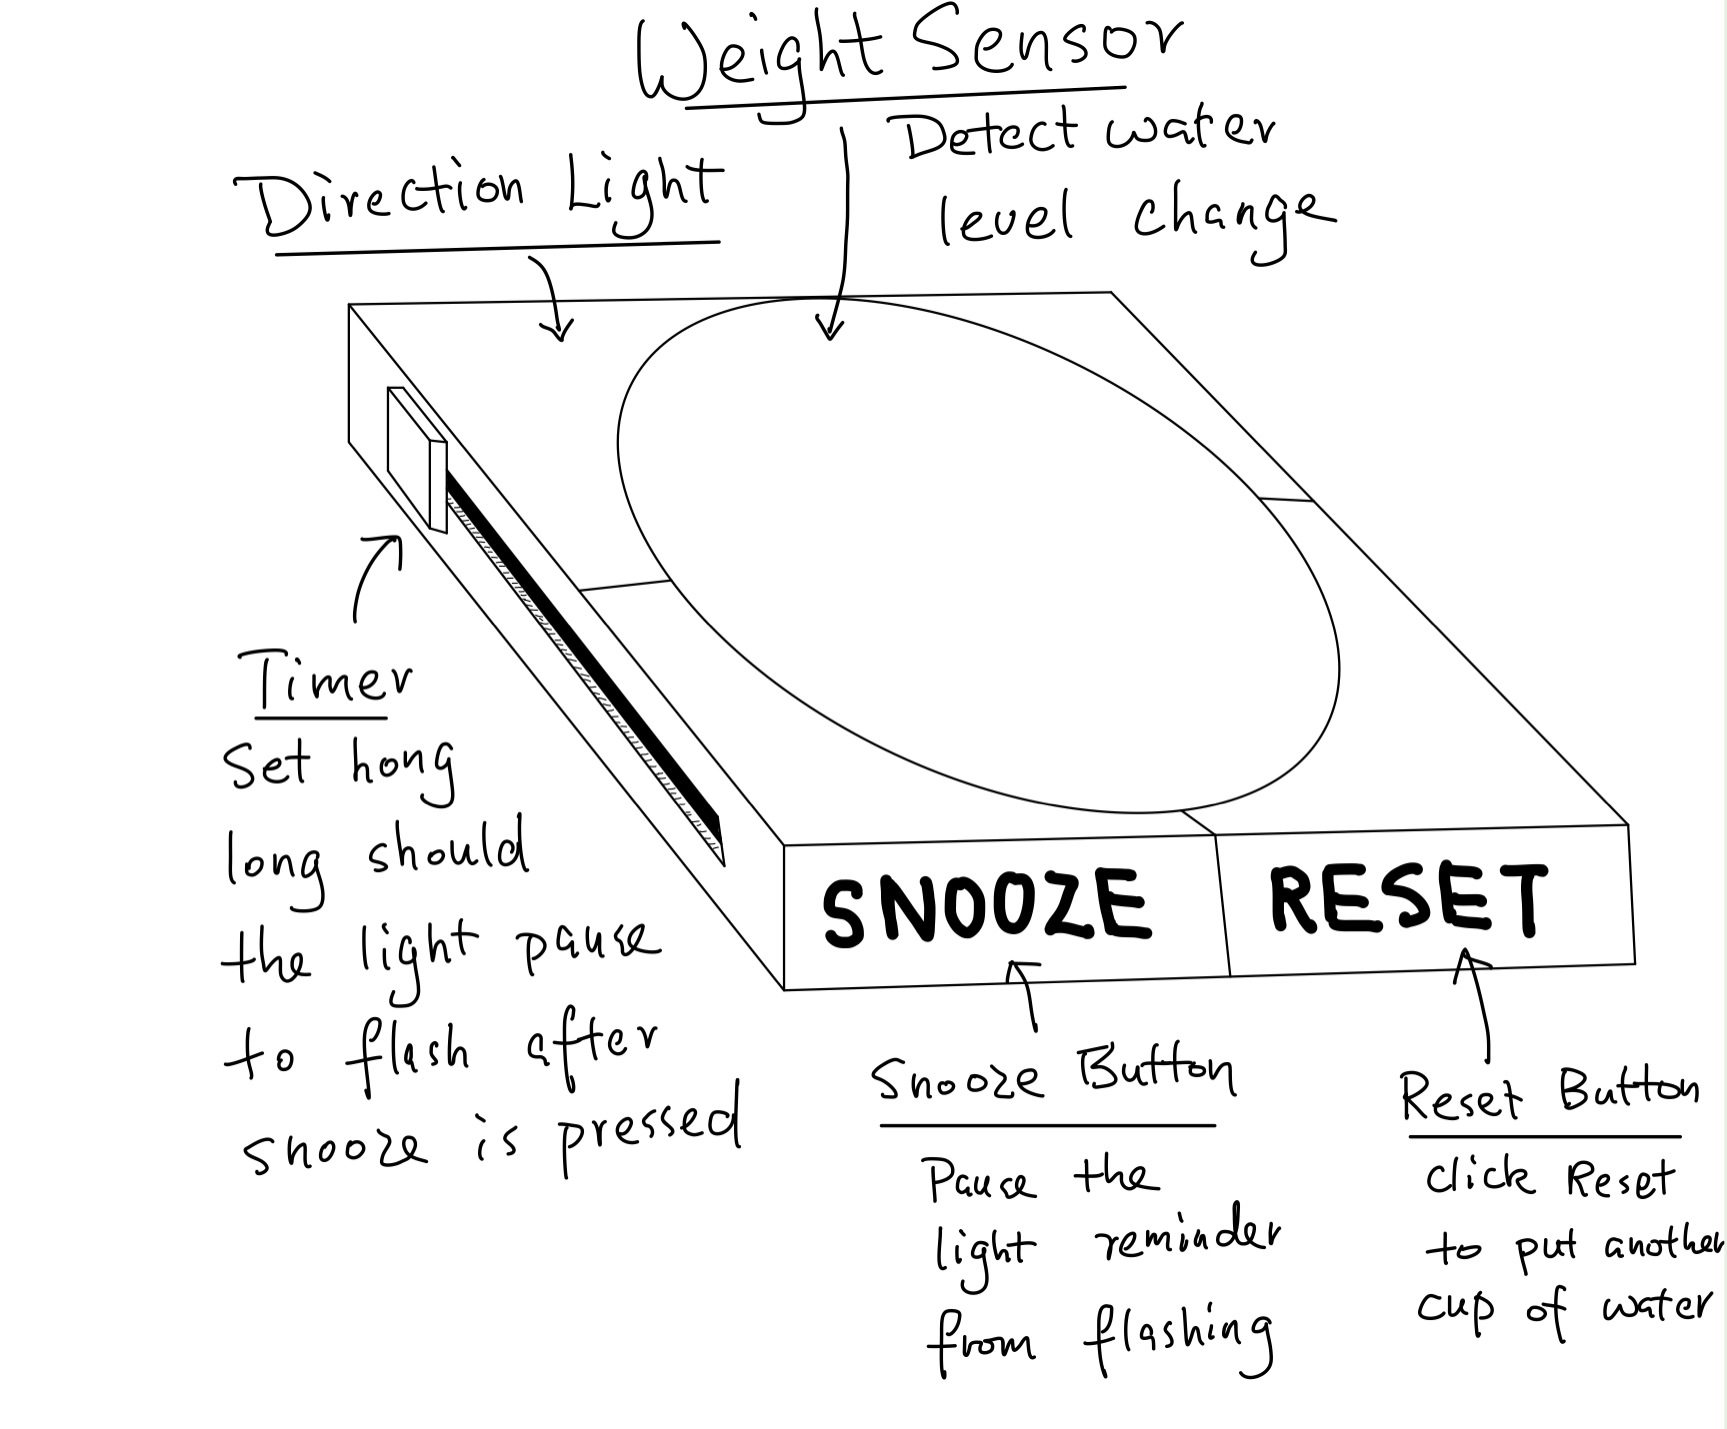 Weight Sensor
Detect water
level change
Direction Light
Timer
Set hong
long should
the light pause
to flash after
snooze is pressed
SNOOZE
RESET
Snooze Button
Pause the
light reminder
from flashing
Reset Button
click Reset
to put another
cup of water